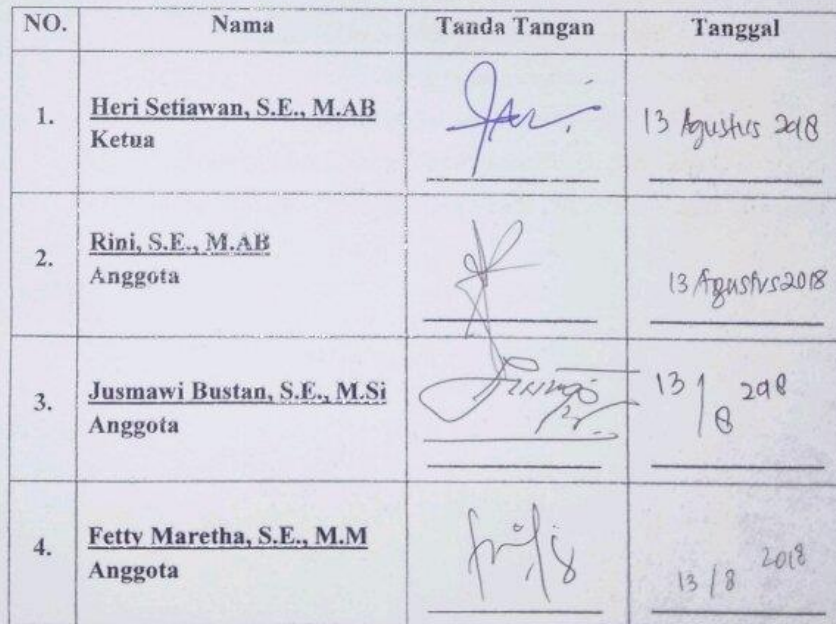 NO. Nama Tanda Tangan Tanggal
1. Heri Setiawan, S.E., M.AB
Ketua
13 Agustus 2018
2. Rini, S.E., M.AB
Anggota
13 Agustus 2018
3. Jusmawi Bustan, S.E., M.Si
Anggota
13/8 2018
4. Fetty Maretha, S.E., M.M
Anggota
13/8 2018